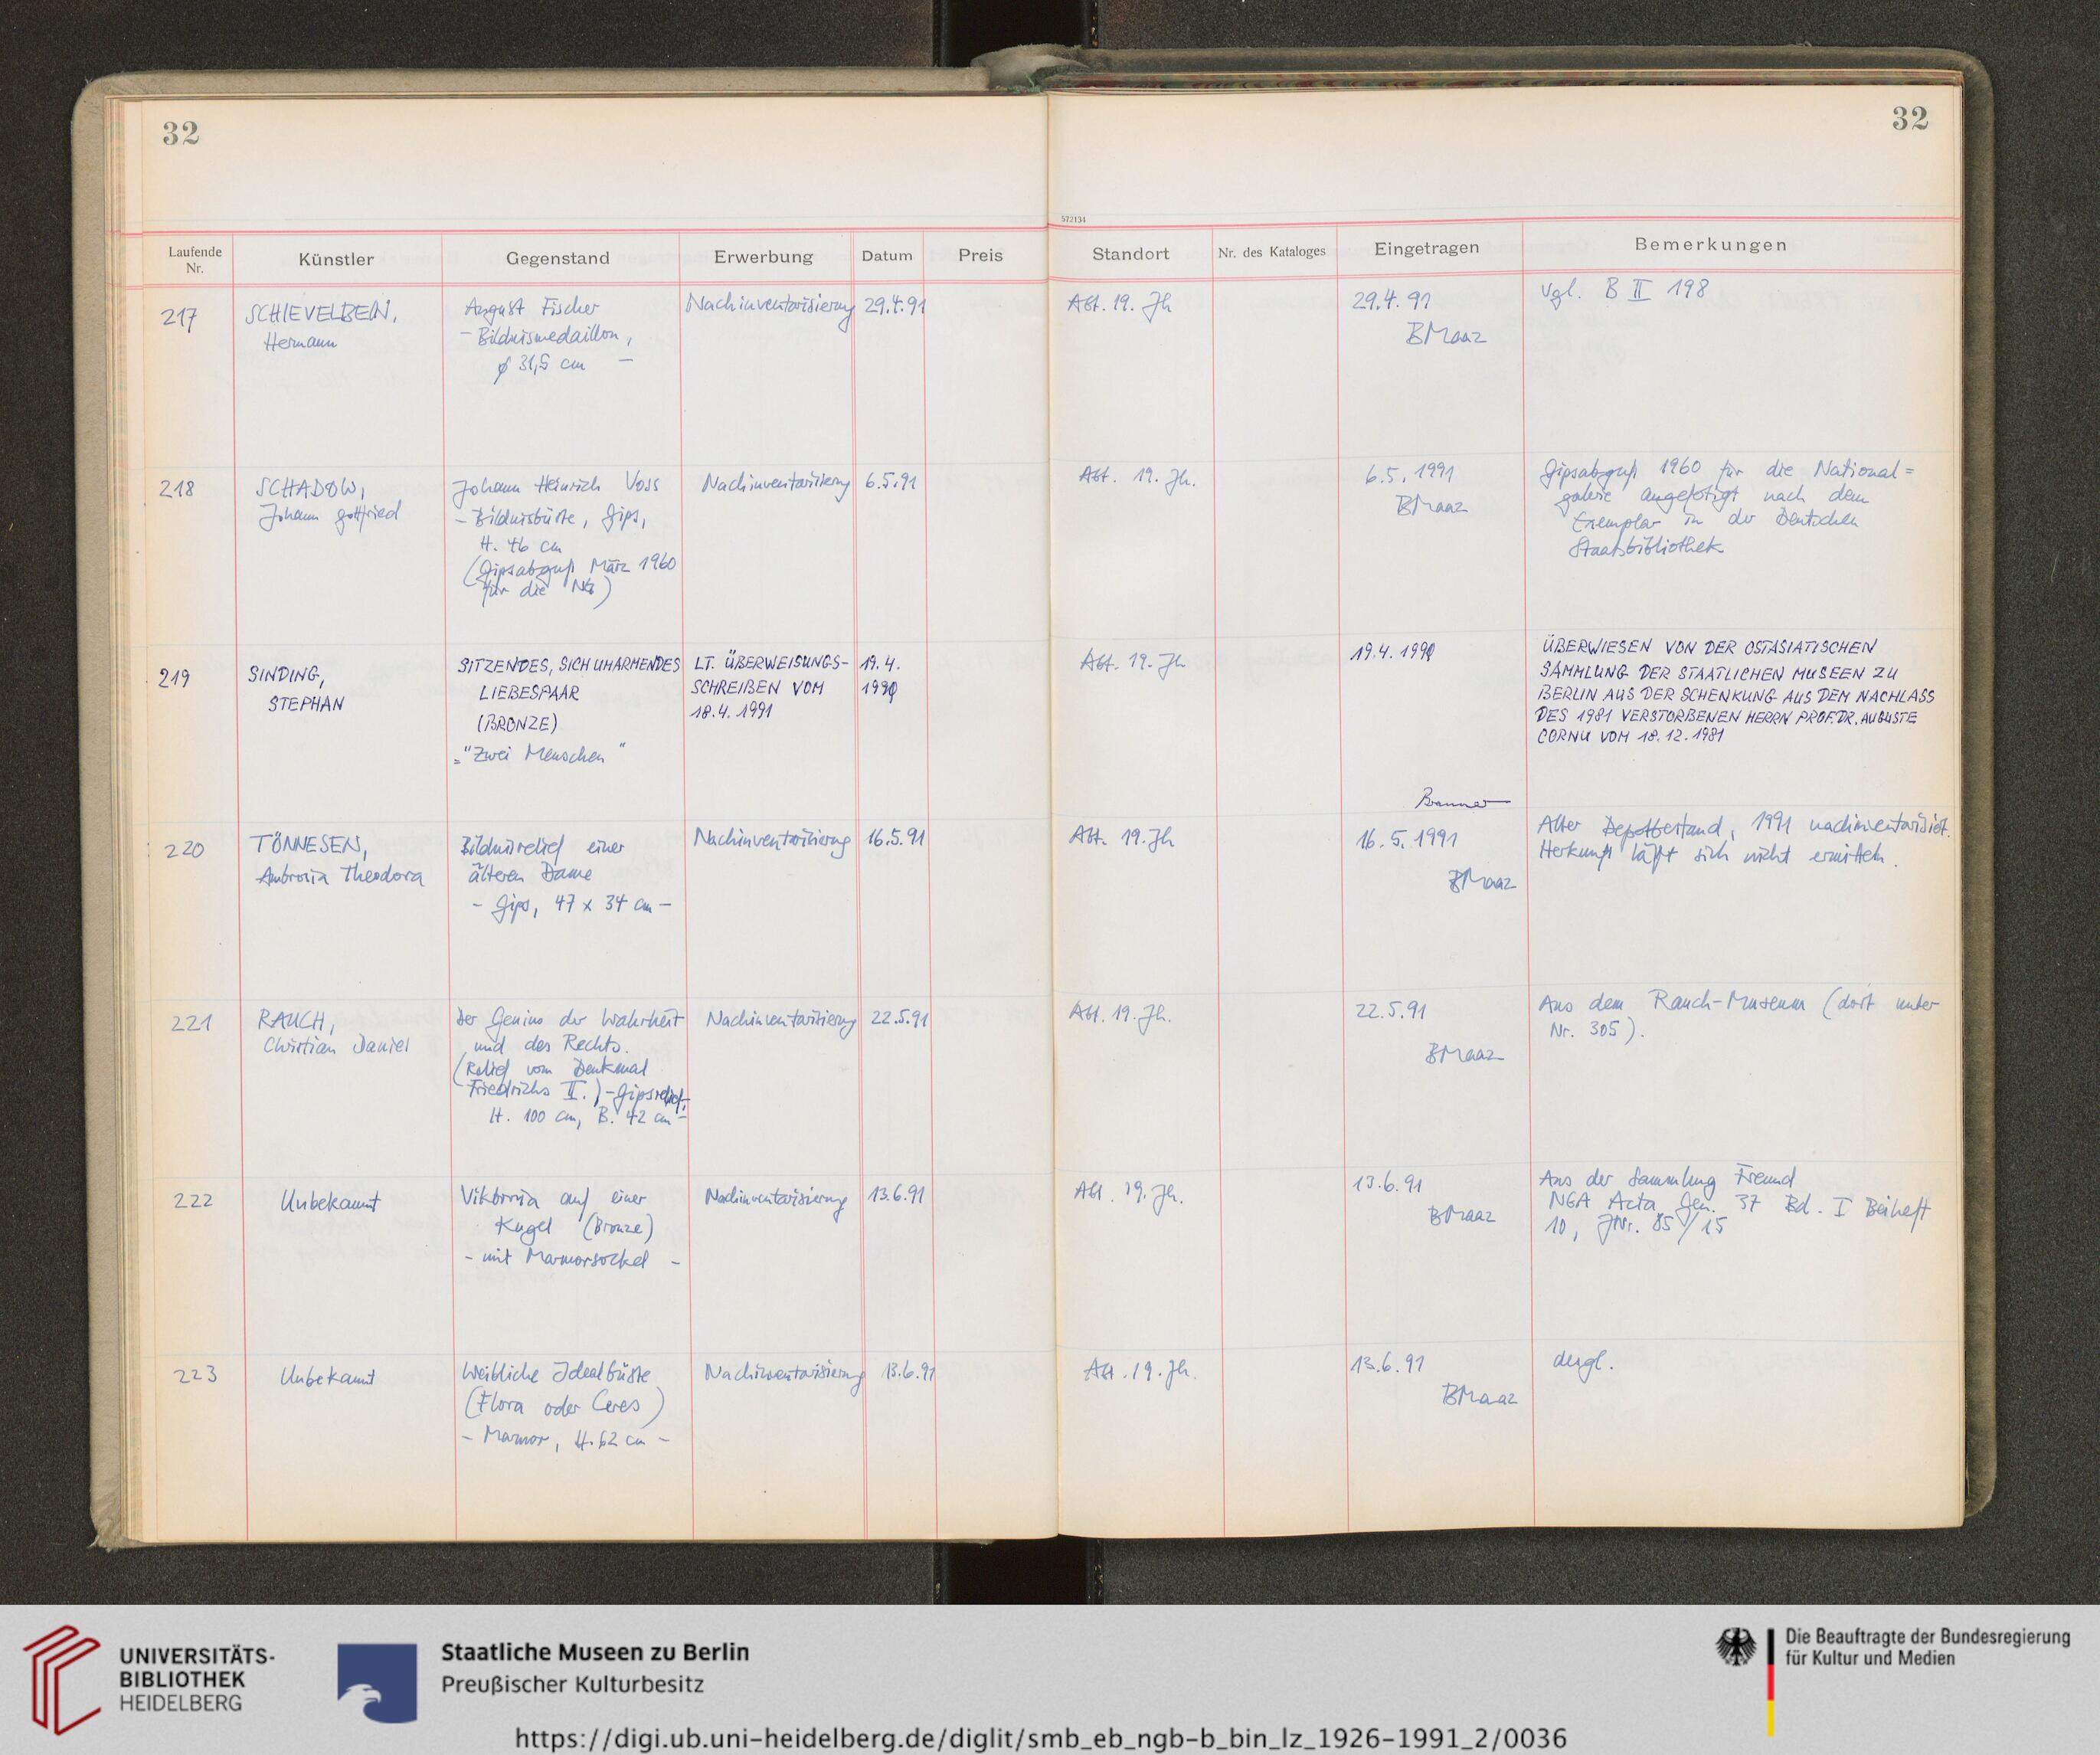 32
32
572134
Laufende Nr.
Künstler
Gegenstand
Erwerbung
Datum
Preis
Standort
Nr. des Kataloges
Eingetragen
Bemerkungen
217
SCHIEVELBEIN,
Hermann
August Fischer
- Bildnismedaillon,
ø 31,5 cm -
Nachinventarisierung
29.4.91
Abt. 19. Jh
29.4.91
BMaaz
Vgl. B II 198
218
SCHADOW,
Johann Gottfried
Johann Heinrich Voss
- Bildnisbüste, Gips,
H. 46 cm
(Gipsabguß März 1960
für die NG)
Nachinventarisierung
6.5.91
Abt. 19. Jh.
6.5.1991
BMaaz
Gipsabguß 1960 für die National=
galerie angefertigt nach dem
Exemplar in der Deutschen
Staatsbibliothek
219
SINDING,
STEPHAN
SITZENDES, SICH UMARMENDES
LIEBESPAAR
(BRONZE)
= "Zwei Menschen"
LT. ÜBERWEISUNGS-
SCHREIBEN VOM
18.4.1991
19.4.
1991
Abt. 19. Jh
19.4.1991
ÜBERWIESEN VON DER OSTASIATISCHEN
SAMMLUNG DER STAATLICHEN MUSEEN ZU
BERLIN AUS DER SCHENKUNG AUS DEM NACHLASS
DES 1981 VERSTORBENEN HERRN PROF. DR. AUGUSTE
CORNU VOM 18.12.1981
220
TÖNNESEN,
Ambrosia Theodora
Bildnisrelief einer
älteren Dame
- Gips, 47 x 34 cm -
Nachinventarisierung
16.5.91
Abt. 19. Jh
16.5.1991
BMaaz
Alter Depotbestand, 1991 nachinventarisiert.
Herkunft läßt sich nicht ermitteln.
221
RAUCH,
Christian Daniel
Der Genius der Wahrheit
und des Rechts.
(Relief vom Denkmal
Friedrichs II.) - Gipsrelief,
H. 100 cm, B. 42 cm -
Nachinventarisierung
22.5.91
Abt. 19. Jh.
22.5.91
BMaaz
Aus dem Rauch-Museum (dort unter
Nr. 305).
222
Unbekannt
Viktoria auf einer
Kugel (Bronze)
- mit Marmorsockel -
Nachinventarisierung
13.6.91
Abt. 19. Jh.
13.6.91
BMaaz
Aus der Sammlung Freund
NGA Acta Gen. 37 Bd. I Beiheft
10, JNr. 85/15
223
Unbekannt
Weibliche Idealbüste
(Flora oder Ceres)
- Marmor, H. 62 cm -
Nachinventarisierung
13.6.91
Abt. 19. Jh.
13.6.91
BMaaz
dergl.
UNIVERSITÄTS-
BIBLIOTHEK
HEIDELBERG
Staatliche Museen zu Berlin
Preußischer Kulturbesitz
Die Beauftragte der Bundesregierung
für Kultur und Medien
https://digi.ub.uni-heidelberg.de/diglit/smb_eb_ngb-b_bin_lz_1926-1991_2/0036